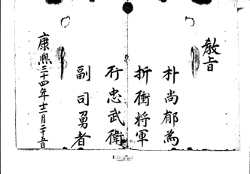 教旨
朴尚郁為
折衝將軍
行忠武衛
副司勇者
康熙三十四年十二月二十五日